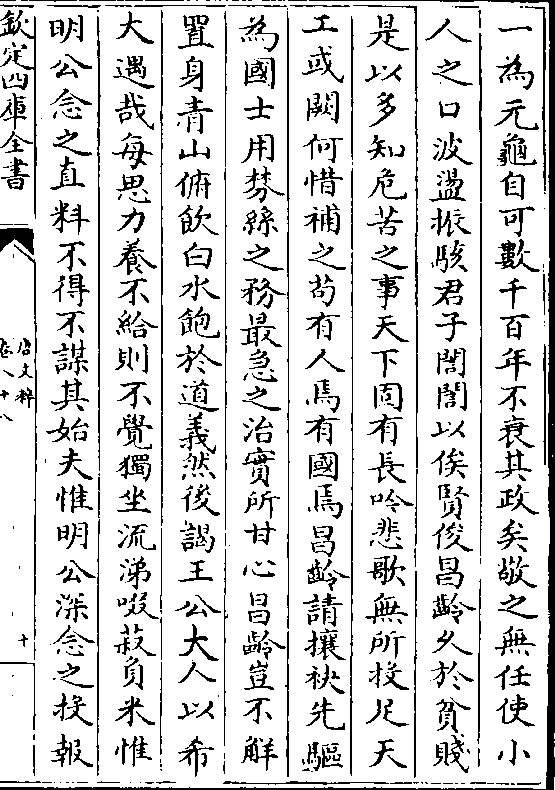 一為元龜自可數千百年不衰其政矣敬之無任使小
人之口波盪振駭君子誾誾以俟賢俊昌齡久於貧賤
是以多知危苦之事天下固有長吟悲歌無所投足天
工或闕何惜補之苟有人焉有國焉昌齡請攘袂先驅
為國士用棼絲之務最急之治實所甘心昌齡豈不解
置身青山俯飲白水飽於道義然後謁王公大人以希
大遇哉每思力養不給則不覺獨坐流涕啜菽負米惟
明公念之直料不得不謀其始夫惟明公深念之投報
欽定四庫全書
唐文粹
卷八十八
十